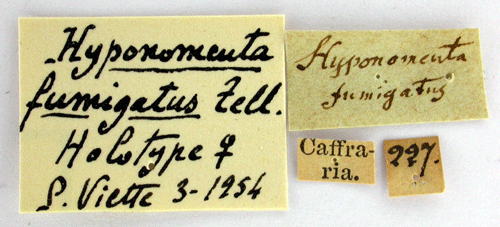 Hyponomeuta
fumigatus Zell.
Holotype ♀
P. Viette 3-1954
Hyponomeuta
fumigatus
Caffra-
ria.
227.